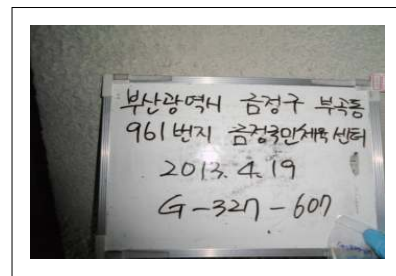 부산광역시 금정구 부곡동
961번지 금정국민체육센터
2013. 4. 19
G-327-607